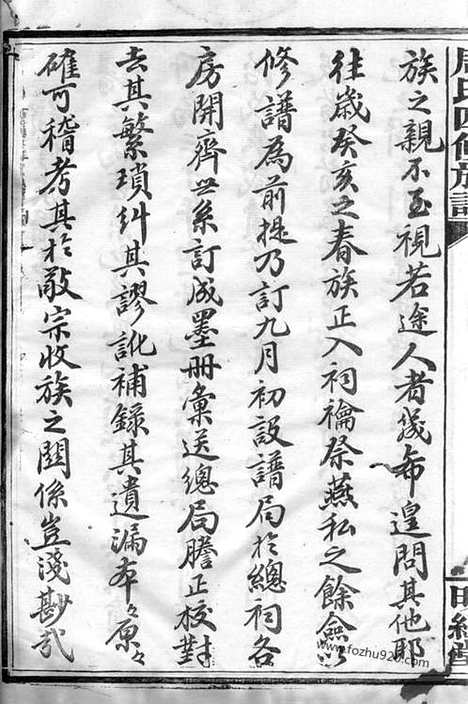 周氏四修族譜
明經堂
族之親不至視若途人者幾希遑問其他耶
往歲癸亥之春族正入祠禴祭燕私之餘僉以
修譜為前提乃訂九月初設譜局於總祠各
房開齊世系訂成墨册彙送總局謄正校對
去其繁瑣糾其謬訛補錄其遺漏本々原々
確可稽考其於敬宗收族之関係豈淺尠哉
www.fozhu920.com